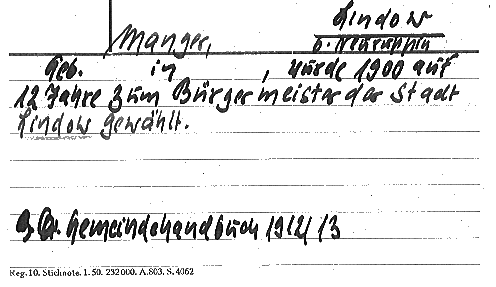 Lindow
Manger, b. Neuruppin
Geb. in , wurde 1900 auf
12 Jahre zum Bürgermeister der Stadt
Lindow gewählt.
Gemeindehandbuch 1912/13
Reg. 10. Stichnote. 1. 50. 232000. A. 803. S. 4062